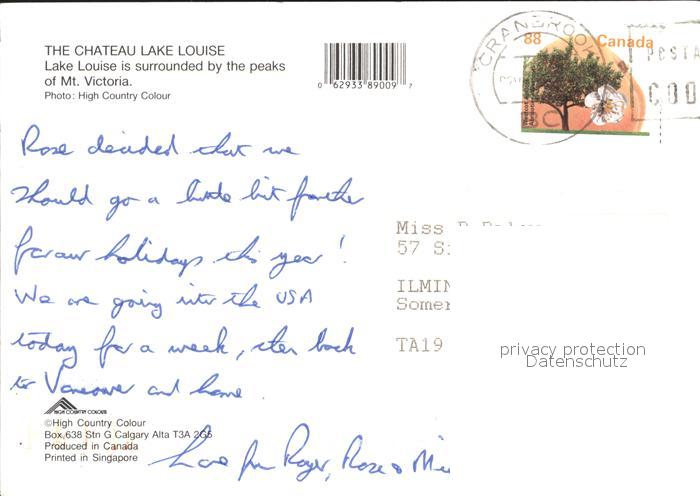 THE CHATEAU LAKE LOUISE
Lake Louise is surrounded by the peaks
of Mt. Victoria.
Photo: High Country Colour
0 62933 89009 7
CRANBROOK
BC
88
Canada
POSTA
COD
Rose decided that we
should go a little bit further
for our holidays this year!
We are going into the USA
today for a week, then back
to Vancouver and home.
Love from Roger, Rose &
Miss
57
ILMIN
Somer
TA19
privacy protection
Datenschutz
HIGH COUNTRY COLOUR
©High Country Colour
Box 638 Stn G Calgary Alta T3A 2G5
Produced in Canada
Printed in Singapore